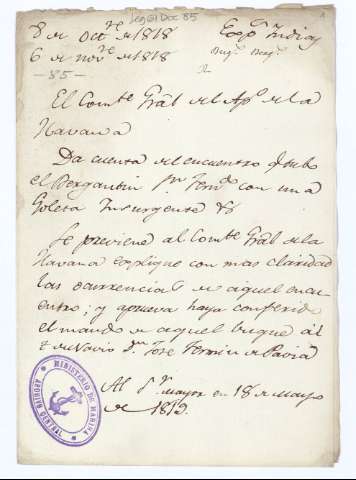 Leg 9 Doc 85
8 de Octre. de 1818 Exp.n Indias
6 de novre. de 1818 Berg.n Berg.n
- 85 -
El Comte. Gral del Apo. de la
Havana
Da cuenta del encuentro q.e tubo
el Bergantin Sn. Fern.do con una
Goleta Insurgente &
Se previene al Comte. Gral de la
Havana explique con mas claridad
las ocurrencias de aquel encu-
entro; y aprueva haya conferido
el mando de aquel buque al
T. de Navio Dn. Jose Fermin de Pavia
Al Sr. Mayor en 18 de Mayo
de 1819.
MINISTERIO DE MARINA
ARCHIVO CENTRAL